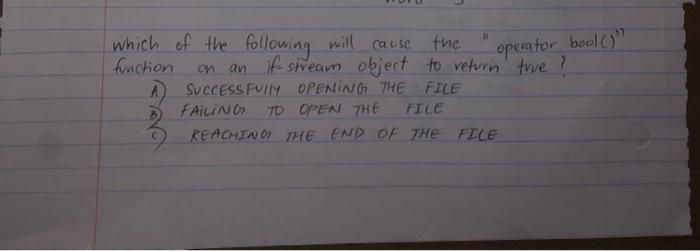 which of the following will cause the "operator bool()"
function on an if-stream object to return true?
A) SUCCESSFULLY OPENING THE FILE
B) FAILING TO OPEN THE FILE
C) REACHING THE END OF THE FILE